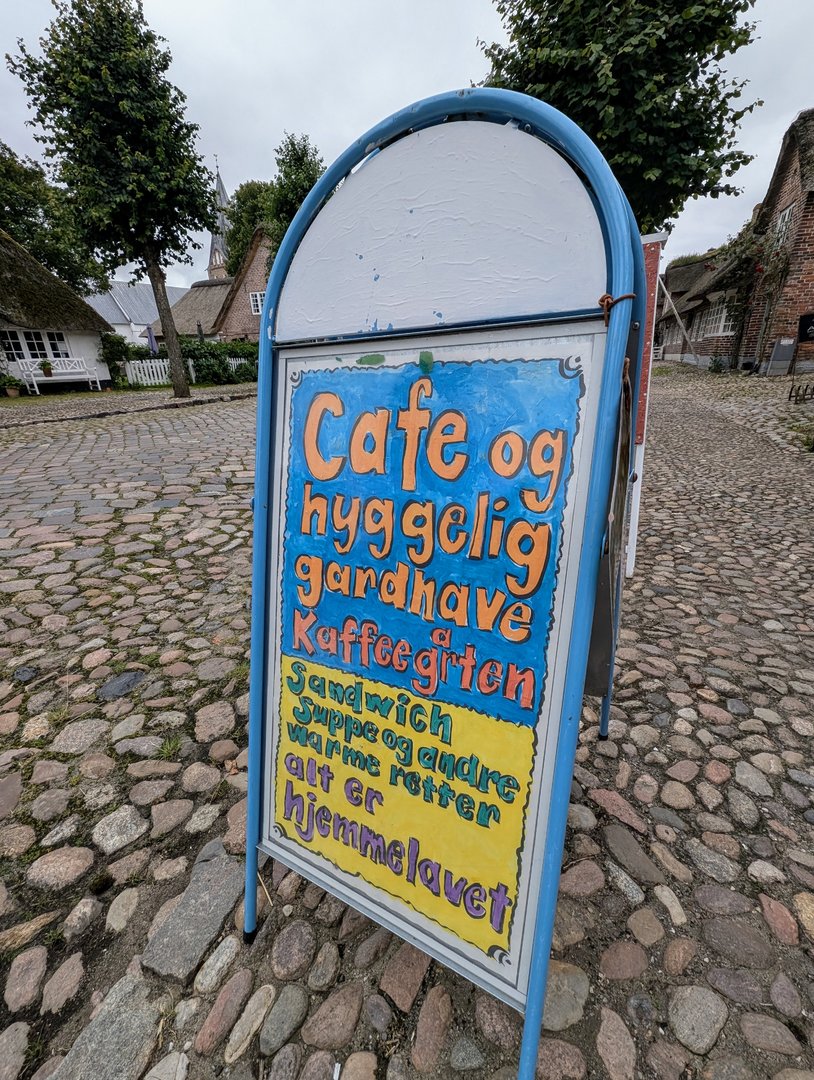 Cafe og
hyggelig
gardhave
Kaffeegarten
Sandwich
Suppe og andre
warme retter
alt er
hjemmelavet